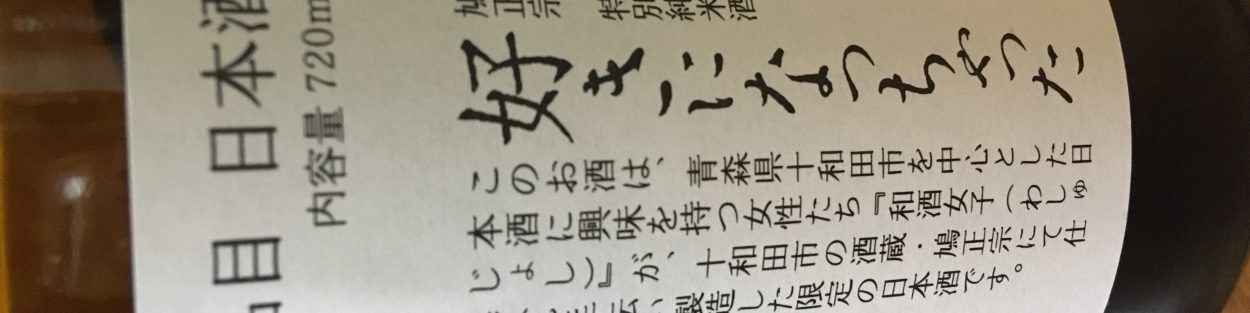 鳩正宗 特別純米酒
好きになっちゃった
このお酒は、青森県十和田市を中心とした日
本酒に興味を持つ女性たち『和酒女子（わしゅ
じょし）』が、十和田市の酒蔵・鳩正宗にて仕
製造した限定の日本酒です。
目 日本酒
内容量 720m